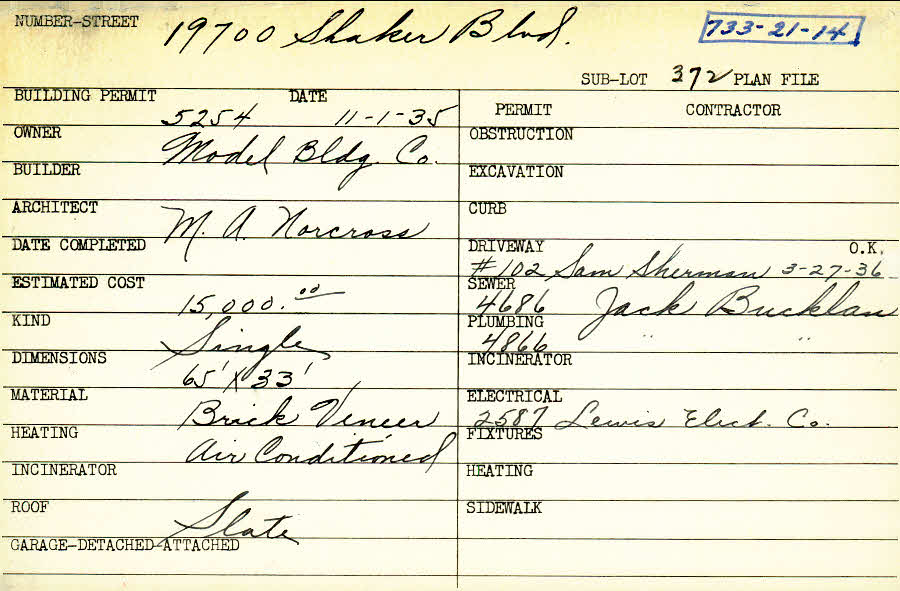 NUMBER-STREET 19700 Shaker Blvd. 733-21-14
SUB-LOT 372 PLAN FILE
BUILDING PERMIT DATE
5254 11-1-35
PERMIT CONTRACTOR
OWNER Model Bldg. Co.
BUILDER
ARCHITECT M. A. Norcross
DATE COMPLETED
ESTIMATED COST 15,000.00
KIND Single
DIMENSIONS 65' x 33'
MATERIAL Brick Veneer
HEATING Air Conditioned
INCINERATOR
ROOF Slate
GARAGE-DETACHED-ATTACHED
OBSTRUCTION
EXCAVATION
CURB
DRIVEWAY O.K.
#102 Sam Sherman 3-27-36
SEWER
4686 Jack Bucklan
PLUMBING
4866 " "
INCINERATOR
ELECTRICAL
2587 Lewis Elect. Co.
FIXTURES
HEATING
SIDEWALK